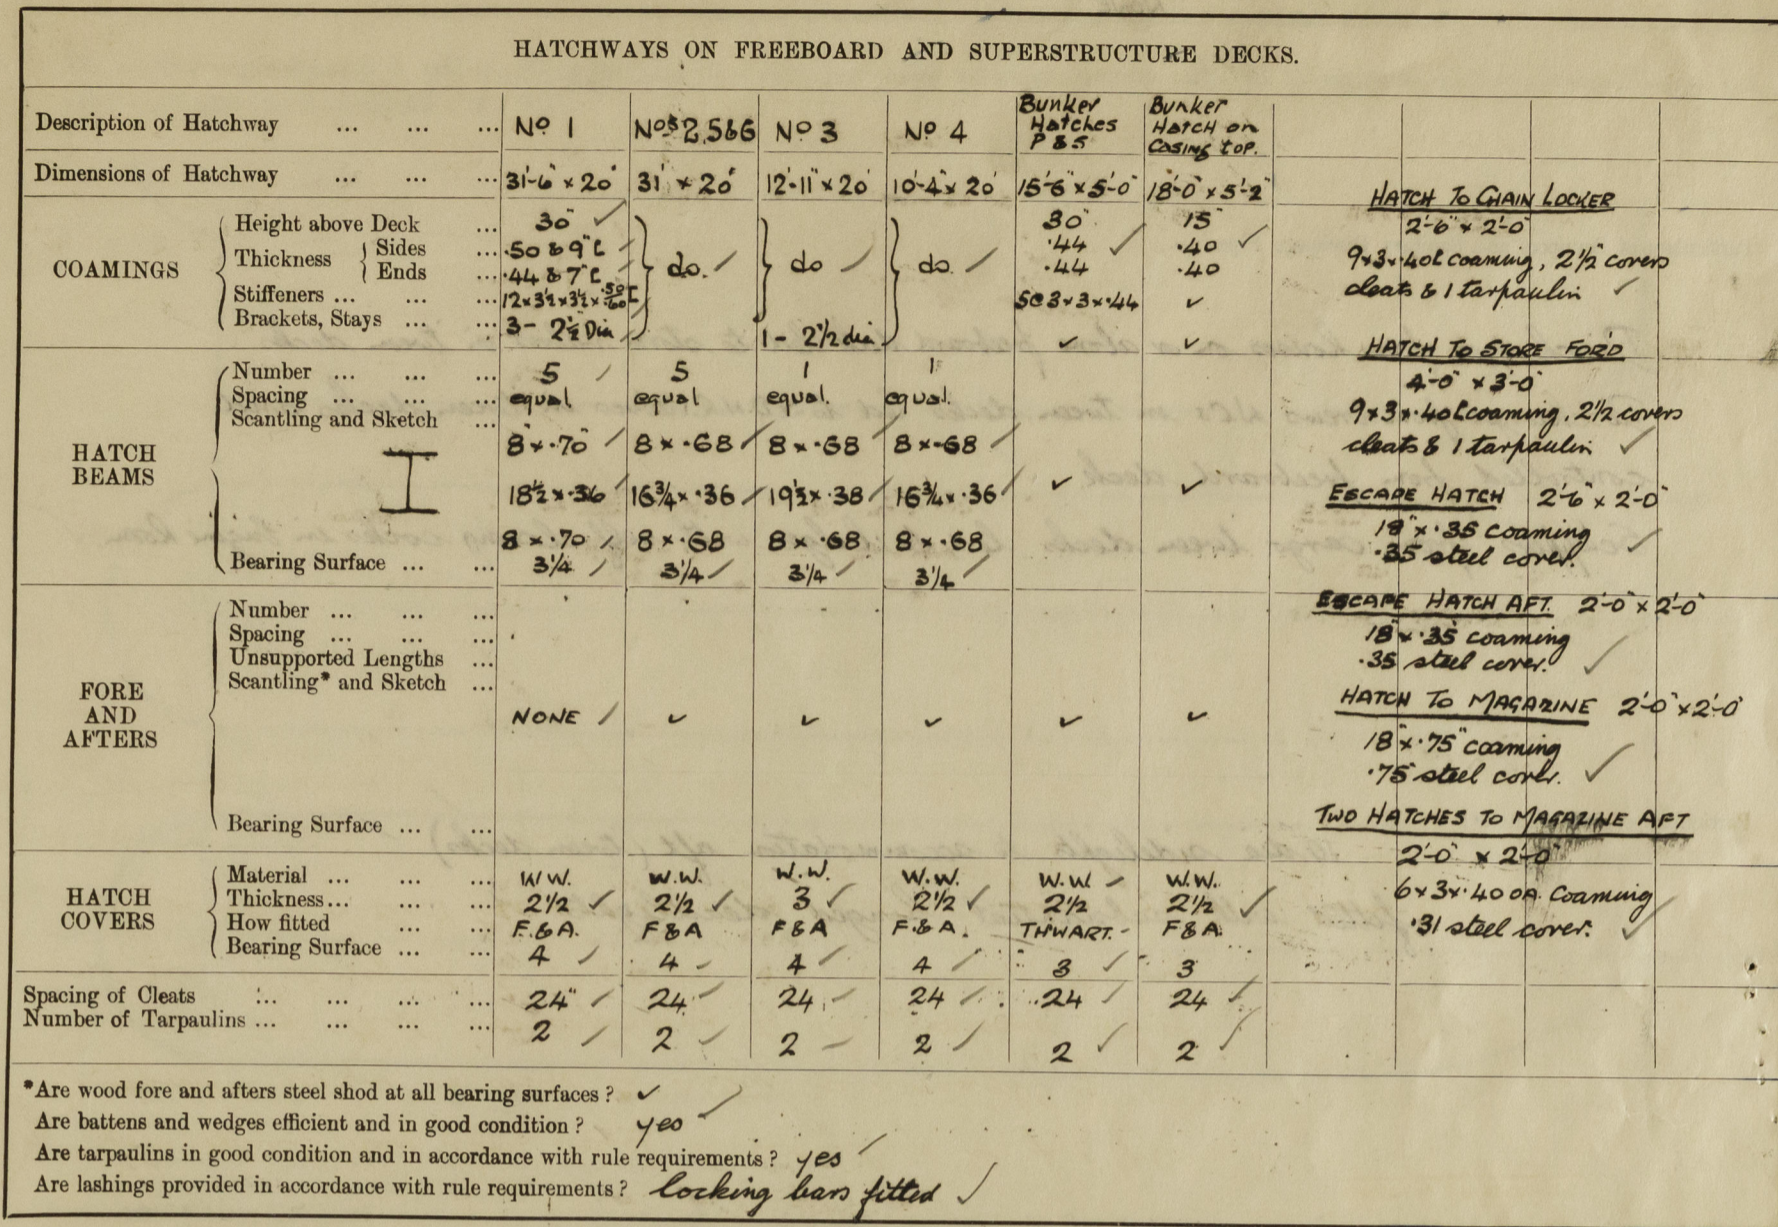 HATCHWAYS ON FREEBOARD AND SUPERSTRUCTURE DECKS.
Description of Hatchway ... ... ... No 1 Nos 2,5&6 No 3 No 4 Bunker Hatches P & S Bunker Hatch on Casing top.
Dimensions of Hatchway ... ... ... 31'-6" x 20' 31' x 20' 12'-11" x 20' 10'-4" x 20' 15'-6" x 5'-0" 18'-0" x 5'-2"
COAMINGS
Height above Deck ... 30" ✓ do. ✓ do ✓ do. ✓ 30" 15"
Thickness
Sides ... .50 & 9" .44 ✓ .40 ✓
Ends ... .44 & 7" .44 .40
Stiffeners ... ... ... 12 x 3½ x 3½ x .50/.60 3 x 3 x .44 ✓
Brackets, Stays ... ... 3 - 2½" Dia 1 - 2½ dia ✓ ✓
HATCH BEAMS
Number ... ... ... 5 5 1 1
Spacing ... ... ... equal equal equal. equal.
Scantling and Sketch ...
8" x .70" 8 x .68 8 x .68 8 x .68
18½ x .36 16¾ x .36 19½ x .38 16¾ x .36 ✓ ✓
8 x .70 8 x .68 8 x .68 8 x .68
Bearing Surface ... ... 3¼ 3¼ 3¼ 3¼
FORE AND AFTERS
Number ... ... ...
Spacing ... ... ...
Unsupported Lengths ...
Scantling* and Sketch ...
NONE ✓ ✓ ✓ ✓ ✓
Bearing Surface ... ...
HATCH COVERS
Material ... ... ... W.W. W.W. W.W. W.W. W.W. W.W.
Thickness ... ... ... 2½ ✓ 2½ ✓ 3 ✓ 2½ ✓ 2½ 2½ ✓
How fitted ... ... F.&A. F&A F&A F.&A. THWART. F&A
Bearing Surface ... ... 4 4 4 4 3 3
Spacing of Cleats ... ... ... ... 24" 24 24 24 24 24
Number of Tarpaulins ... ... ... ... 2 2 2 2 2 2
HATCH TO CHAIN LOCKER
2'-6" x 2'-0"
9x3x.40 coaming, 2½" covers
cleats & 1 tarpaulin ✓
HATCH TO STORE FOR'D
4'-0" x 3'-0"
9x3x.40 coaming, 2½ covers
cleats & 1 tarpaulin ✓
ESCAPE HATCH 2'-6" x 2'-0"
18" x .35 coaming
.35 steel cover. ✓
ESCAPE HATCH AFT. 2'-0" x 2'-0"
18" x .35 coaming
.35 steel cover. ✓
HATCH TO MAGAZINE 2'-0" x 2'-0"
18" x .75" coaming
.75 steel cover. ✓
TWO HATCHES TO MAGAZINE AFT
2'-0" x 2'-0"
6x3x.40 OA. Coaming
.31 steel cover. ✓
*Are wood fore and afters steel shod at all bearing surfaces? ✓
Are battens and wedges efficient and in good condition? yes ✓
Are tarpaulins in good condition and in accordance with rule requirements? yes
Are lashings provided in accordance with rule requirements? locking bars fitted ✓